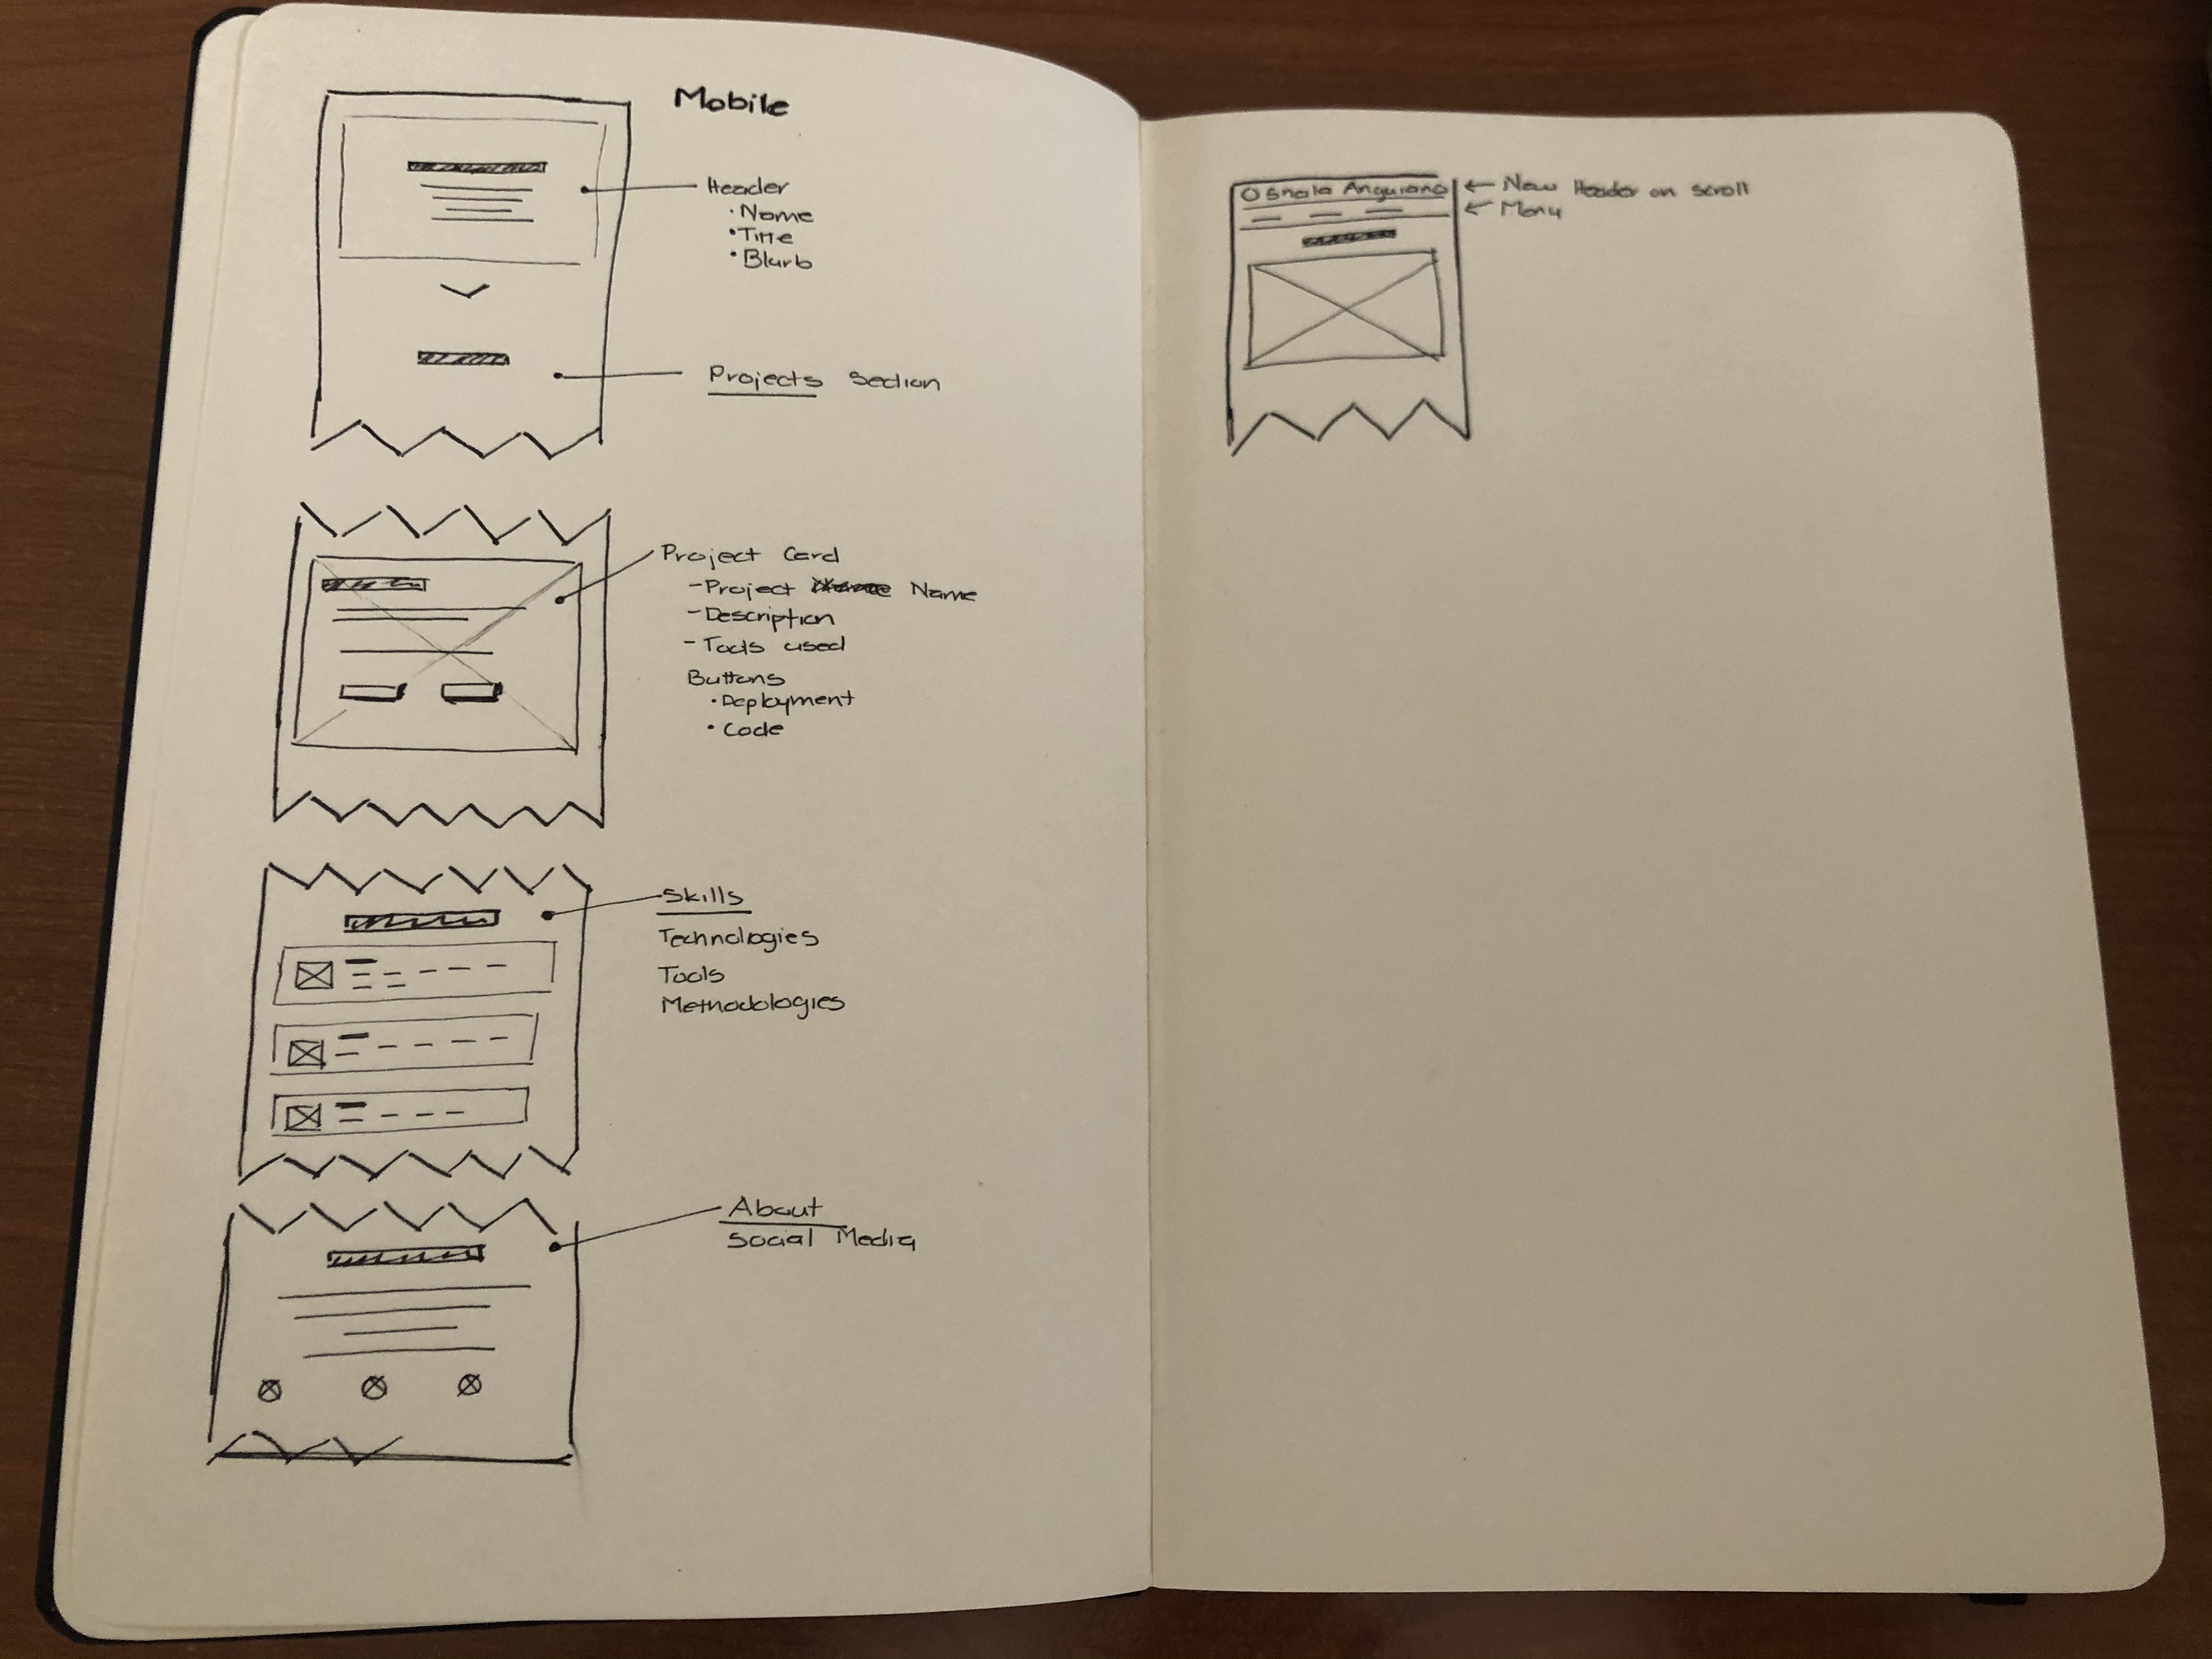 Mobile
Header
· Name
· Title
· Blurb
Projects Section
Project Card
- Project Name
- Description
- Tools used
Buttons
· Deployment
· Code
Skills
Technologies
Tools
Methodologies
About
Social Media
Anguiano ← New Header on scroll
← Menu